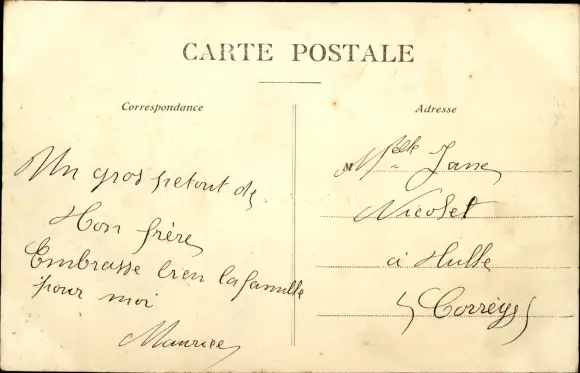 CARTE POSTALE
Correspondance
Un gros petout de
ton frère
Embrasse bien la famille
pour moi
Maurice
Adresse
M Melle Jane
Nicolet
à Hulle
(Corrèze)